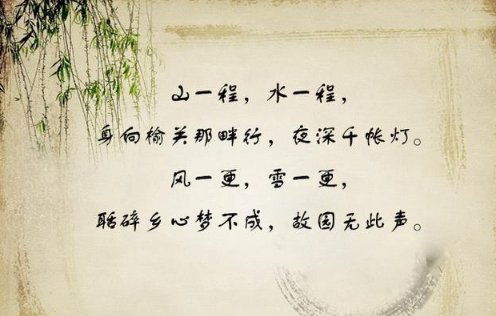 山一程，水一程，
身向榆关那畔行，夜深千帐灯。
风一更，雪一更，
聒碎乡心梦不成，故园无此声。